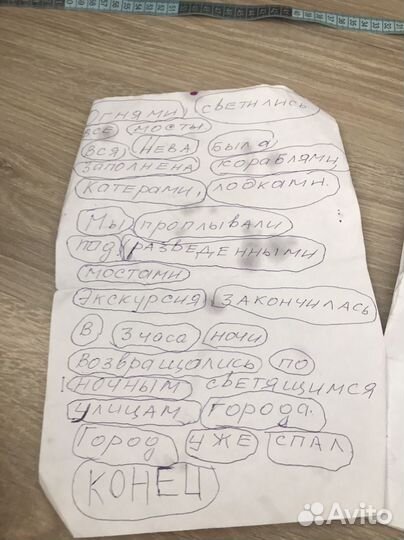 ОГНЯМИ СВЕТИЛИСЬ
ВСЕ МОСТЫ
ВСЯ НЕВА БЫЛА
ЗАПОЛНЕНА КОРАБЛЯМИ,
КАТЕРАМИ, ЛОДКАМИ.
МЫ ПРОПЛЫВАЛИ
ПОД РАЗВЕДЕННЫМИ
МОСТАМИ
ЭКСКУРСИЯ ЗАКОНЧИЛАСЬ
В 3 часа НОЧИ
ВОЗВРАЩАЛИСЬ ПО
НОЧНЫМ СВЕТЯЩИМСЯ
УЛИЦАМ ГОРОДА.
ГОРОД УЖЕ СПАЛ
КОНЕЦ
Avito